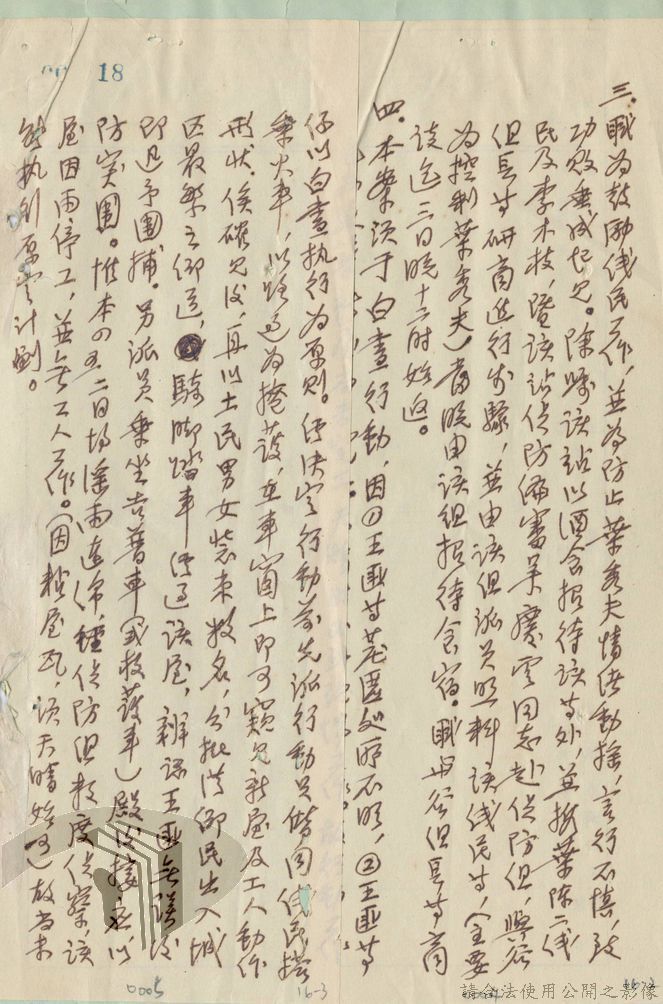 三、職為鼓勵线民工作，並為防止葉秀夫情緒動搖，言行不慎，致
功敗垂成起見。除囑該站以酒食招待該等外，並抄葉陳二线
民及李木枝，暨該站偵防偏審呈慶雲同志赴偵防組，與谷
組長等研商進行步驟，並由該組派員照料該线民等，（主要
為控制葉秀夫）當晚由該組招待食宿。職與谷組長等商
談迄三日晚十二時始返。
四、本案須于白晝行動，因①王匪等藏匿処所不明，②王匪等
仔以白晝执行為原則。經決定行動前先派行動員偕同线民搭
乘火車，以路過為掩護，在車窗上即可窺見新屋及工人動作
形狀。俟確定後，再以土民男女裝束数名，分批從鄉民出入城
区最繁之鄉道，騎脚踏車經過該屋，辨認王匪無誤後
即迅予圍捕。另派員乘坐吉普車（或救護車）殿後接應以
防突圍。惟本（四）五、二日均添雨連綿，經偵防組數度偵察，該
屋因雨停工，並無工人工作。（因粉屋瓦，須天晴始可）故尚未
能执行原定计劃。
18
0005
16-3
16-3
請合法使用公開之影像